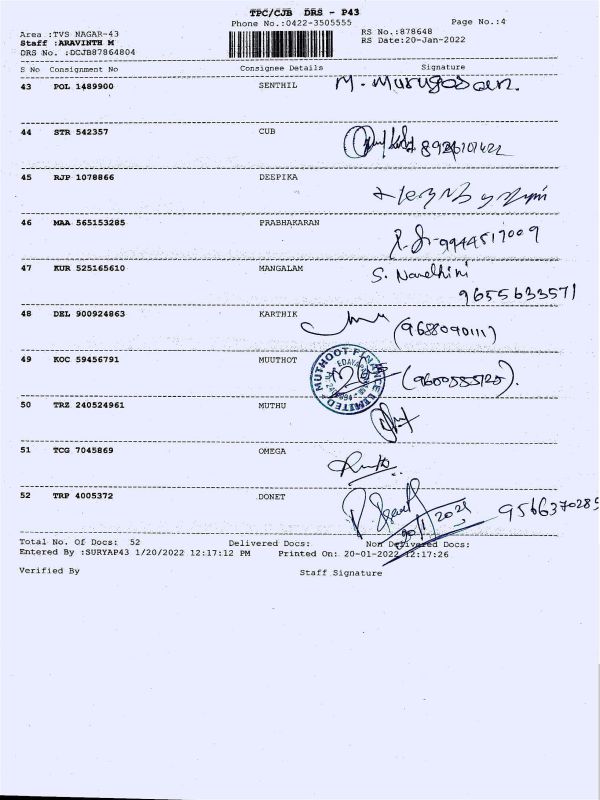 TPC/CJB DRS - P43
Phone No.:0422-3505555 Page No.:4
Area :TVS NAGAR-43 RS No.:878648
Staff :ARAVINTH M RS Date:20-Jan-2022
DRS No. :DCJB87864804
S No Consignment No Consignee Details Signature
43 POL 1489900 SENTHIL M. Murugasan.
44 STR 542357 CUB
45 RJP 1078866 DEEPIKA
46 MAA 565153285 PRABHAKARAN 9944517009
47 KUR 525165610 MANGALAM S. Nandhini
9655633571
48 DEL 900924863 KARTHIK (9688090111)
49 KOC 59456791 MUUTHOT MUTHOOT FINANCE LIMITED (9600585725).
50 TRZ 240524961 MUTHU
51 TCG 7045869 OMEGA
52 TRP 4005372 DONET 9566370285
Total No. Of Docs: 52 Delivered Docs: Non Delivered Docs:
Entered By :SURYAP43 1/20/2022 12:17:12 PM Printed On: 20-01-2022 12:17:26
Verified By Staff Signature